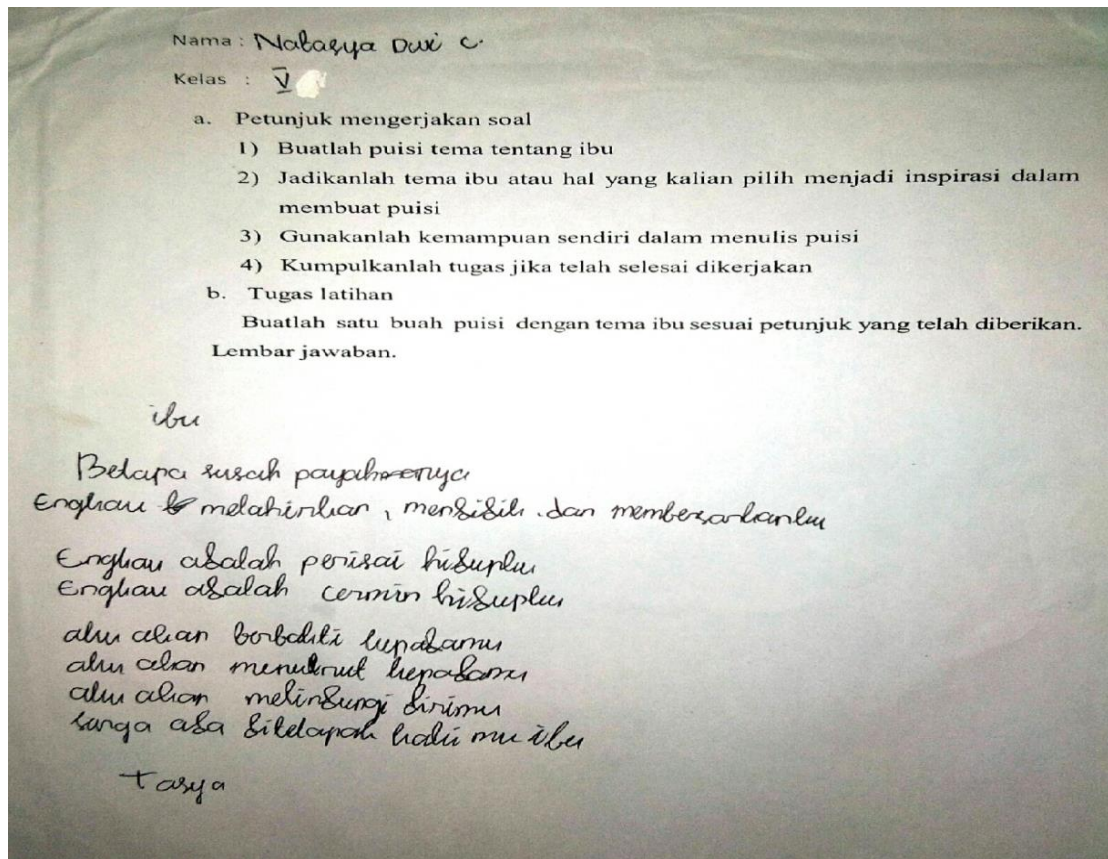 Nama : Natasya Dwi C.
Kelas : V
a. Petunjuk mengerjakan soal
1) Buatlah puisi tema tentang ibu
2) Jadikanlah tema ibu atau hal yang kalian pilih menjadi inspirasi dalam
membuat puisi
3) Gunakanlah kemampuan sendiri dalam menulis puisi
4) Kumpulkanlah tugas jika telah selesai dikerjakan
b. Tugas latihan
Buatlah satu buah puisi dengan tema ibu sesuai petunjuk yang telah diberikan.
Lembar jawaban.
ibu
Betapa susah payahnya
Engkau melahirkan, mendidik dan membesarkanku
Engkau adalah perisai hidupku
Engkau adalah cermin hidupku
aku akan berbakti kepadamu
aku akan menurut kepadamu
aku akan melindungi dirimu
surga ada ditelapak kaki mu ibu
Tasya